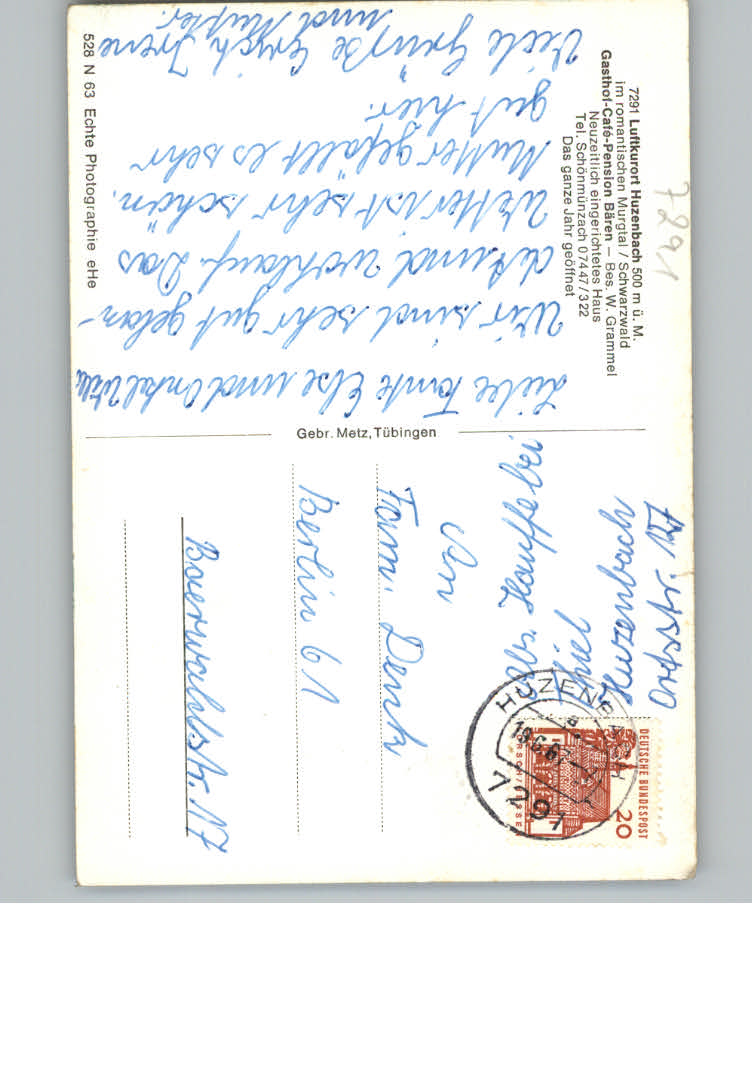 7291 Luftkurort Huzenbach 500 m ü. M.
im romantischen Murgtal / Schwarzwald
Gasthof-Café-Pension Bären – Bes. W. Grammel
Neuzeitlich eingerichtetes Haus
Tel. Schönmünzach 07447/322
Das ganze Jahr geöffnet
7291
Liebe Tante Else und Onkel Willi
Wir sind sehr gut gelan-
det und wohlauf. Das
Wetter ist sehr schön.
Mutter gefällt es sehr
gut hier.
Viele Grüße Erich Irene
und Mutter.
528 N 63 Echte Photographie eHe
Gebr. Metz, Tübingen
Abs. Hauffe bei
Thiel
Huzenbach
Ortsstr. 127
DEUTSCHE BUNDESPOST
20
LORSCH/HESSEN
HUZENBACH
a
7291
An
Fam.
Berlin 61
Baerwaldstr. 17